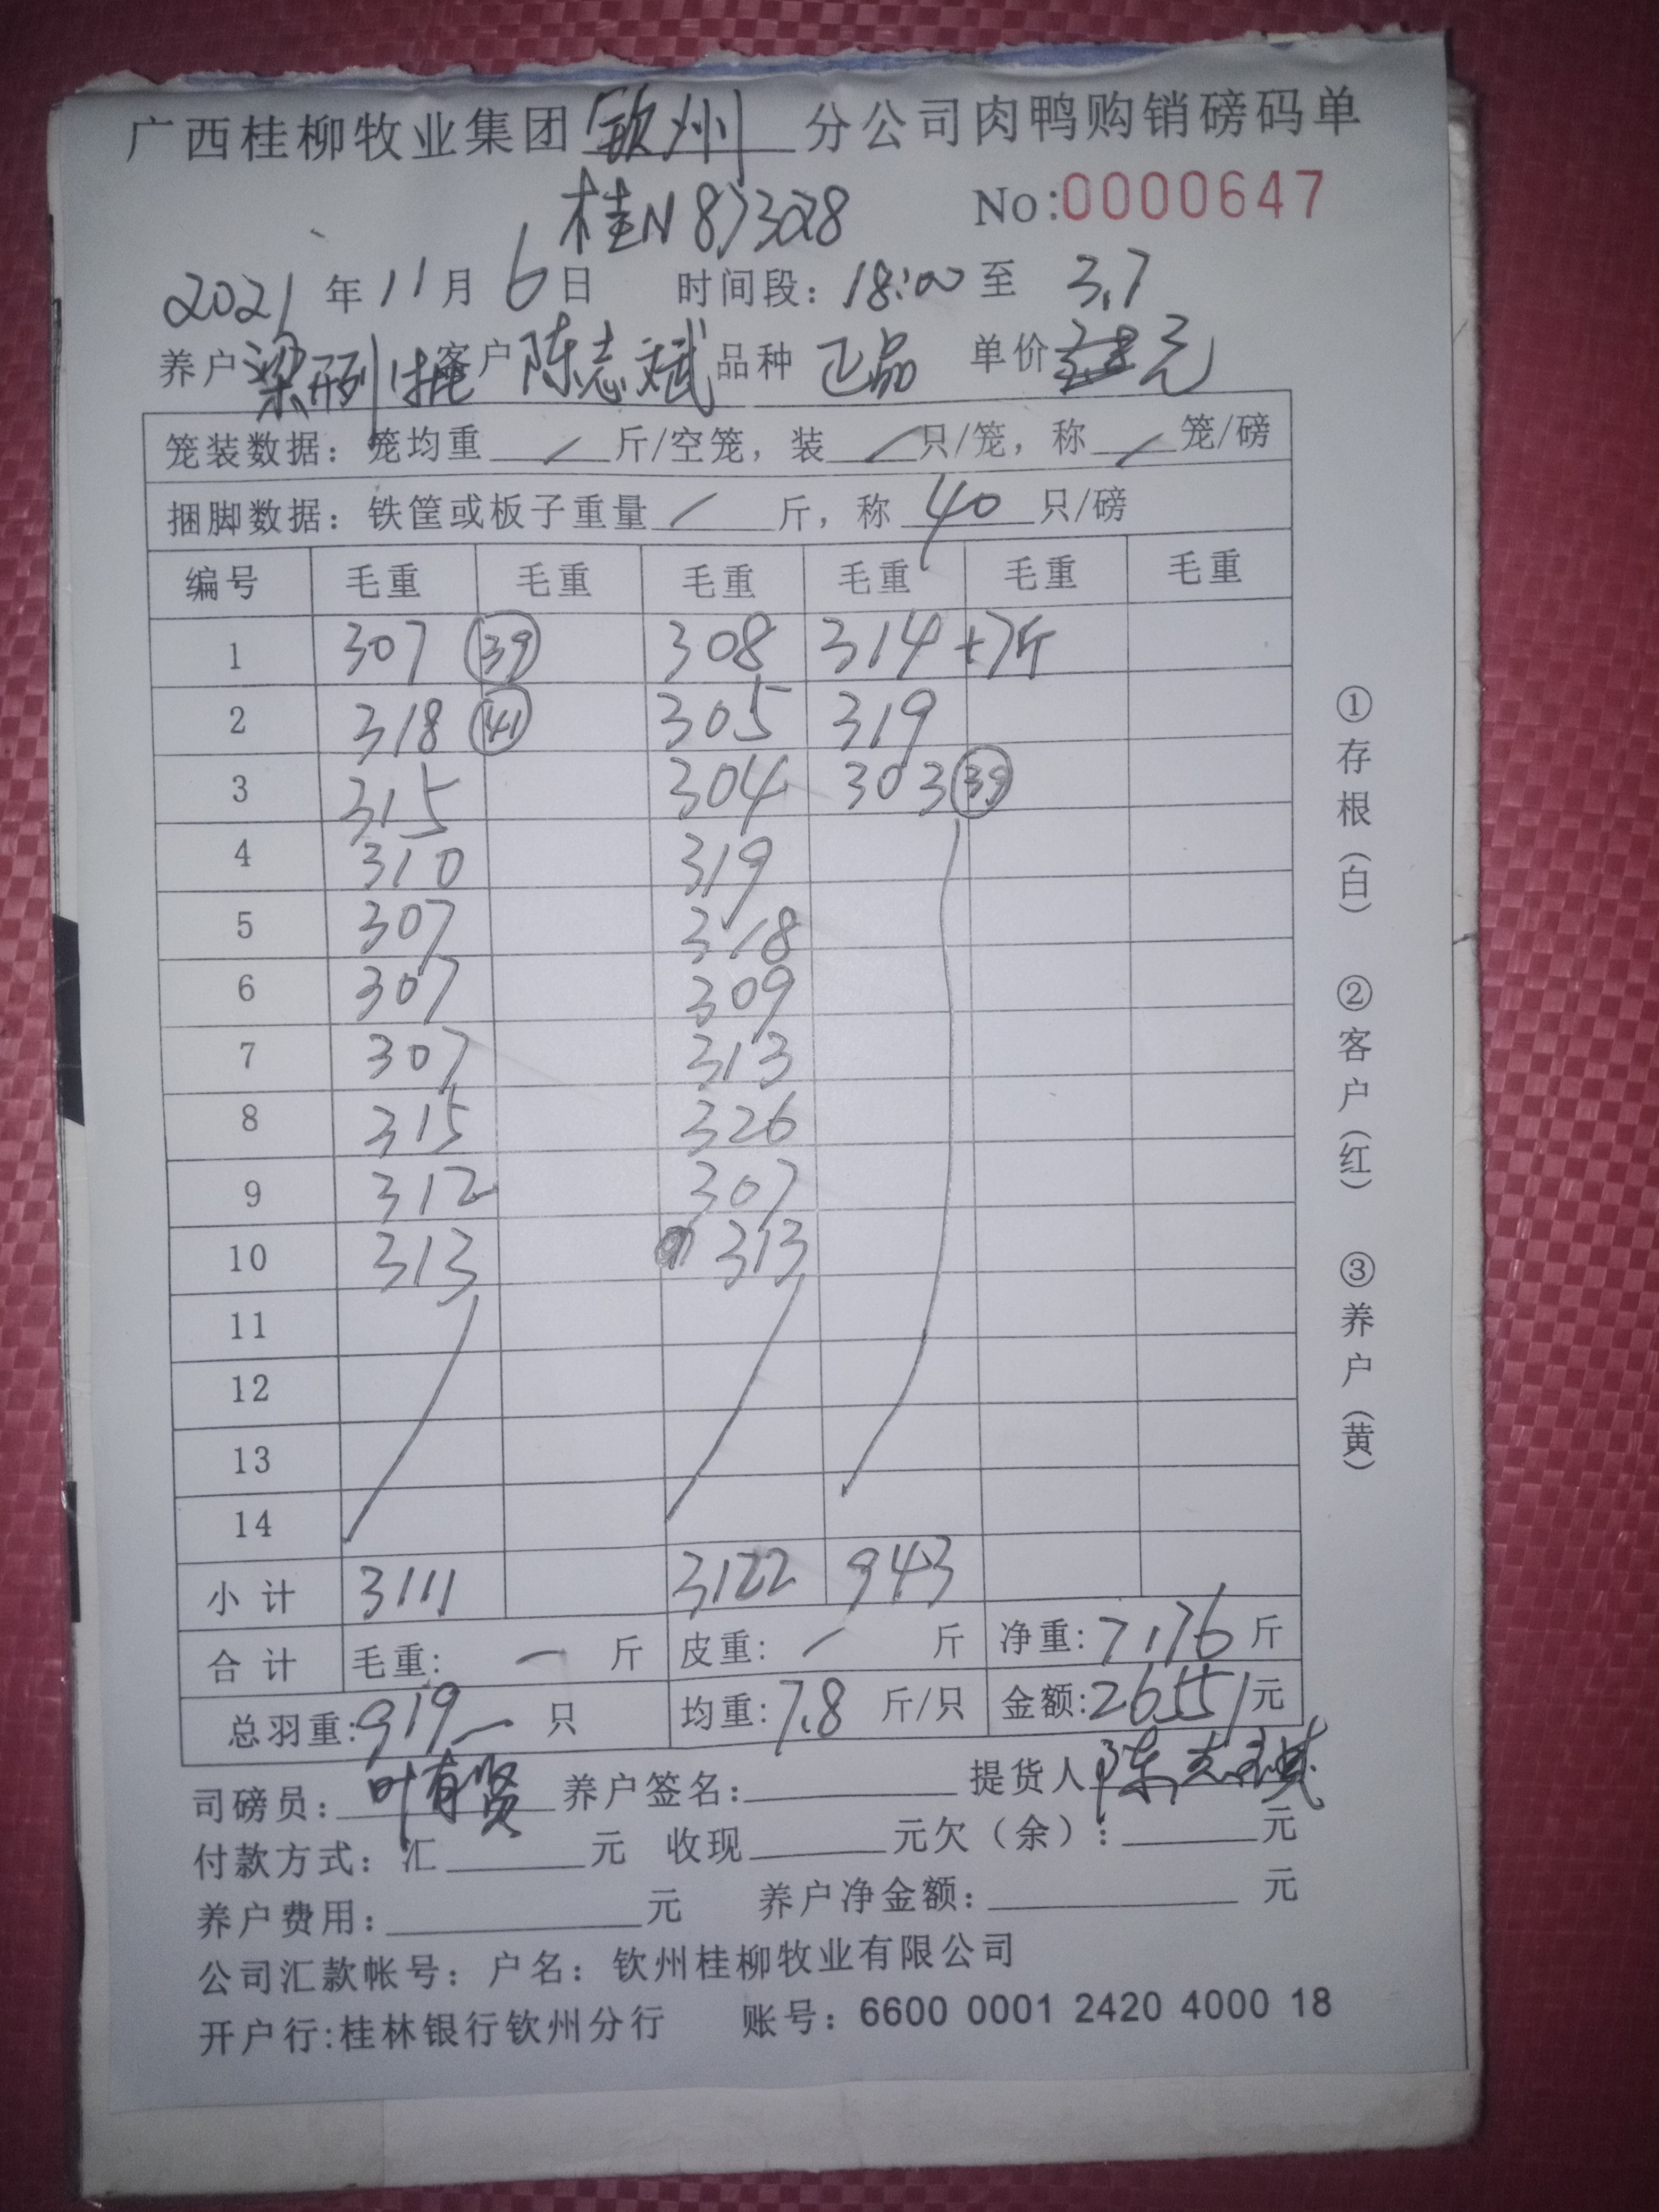 广西桂柳牧业集团钦州分公司肉鸭购销磅码单
桂N87328 No:0000647
2021年11月6日 时间段：18:00至 3.7
养户 梁 客户 陈志斌 品种 正品 单价 元
笼装数据：笼均重 / 斤/空笼，装 / 只/笼，称 / 笼/磅
捆脚数据：铁筐或板子重量 / 斤，称 40 只/磅
编号 毛重 毛重 毛重 毛重 毛重 毛重
1 307 39 308 314 +7斤
2 318 41 305 319
3 315 304 303 39
4 310 319
5 307 318
6 307 309
7 307 313
8 315 326
9 312 307
10 313 313
11
12
13
14
小计 3111 3122 943
合计 毛重: — 斤 皮重: / 斤 净重: 7176 斤
总羽重: 919 只 均重: 7.8 斤/只 金额: 26551 元
司磅员：叶有贤 养户签名: 提货人 陈志斌
付款方式：汇 元 收现 元欠（余）: 元
养户费用: 元 养户净金额: 元
公司汇款帐号：户名：钦州桂柳牧业有限公司
开户行:桂林银行钦州分行 账号：6600 0001 2420 4000 18
①存根（白） ②客户（红） ③养户（黄）